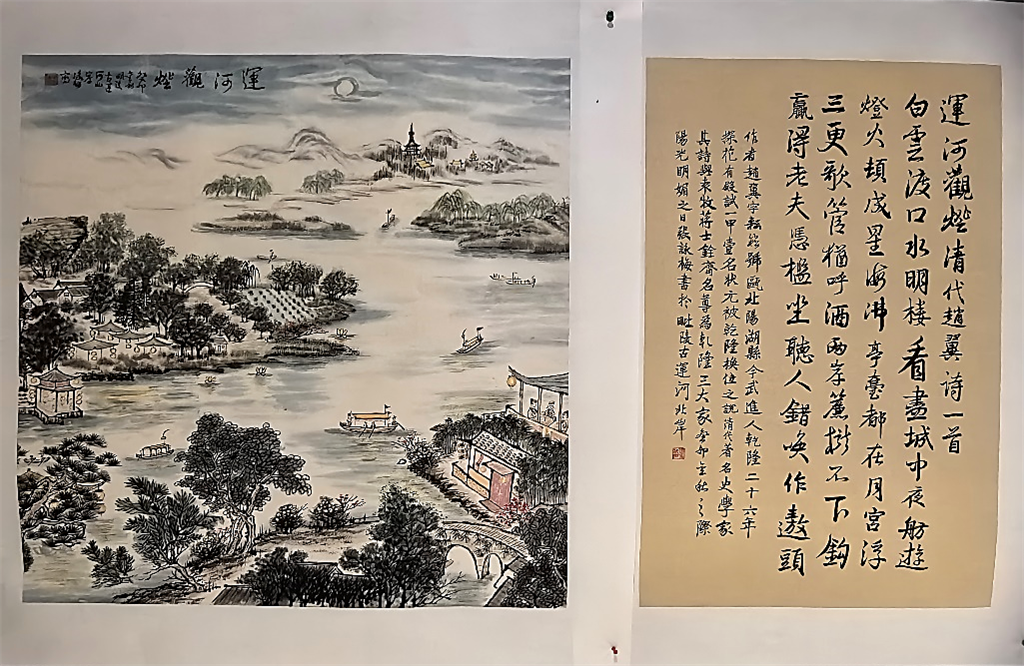 運河觀燈
運河觀燈清代趙翼詩一首
白雲渡口水明樓看盡城中夜舫遊
燈火頓成星海沸亭臺都在月宮浮
三更歌管猶呼酒兩岸簾櫳不下鈎
贏得老夫憑檻坐聽人錯喚作遨頭
作者趙翼字耘崧號甌北陽湖縣今武進人乾隆二十六年
探花有殿試一甲壹名狀元被乾隆換位之說清代著名史學家
其詩與袁牧蔣士銓齊名尊為乾隆三大家癸卯秋之際
陽光明媚之日詠梅書於毗陵古運河北岸